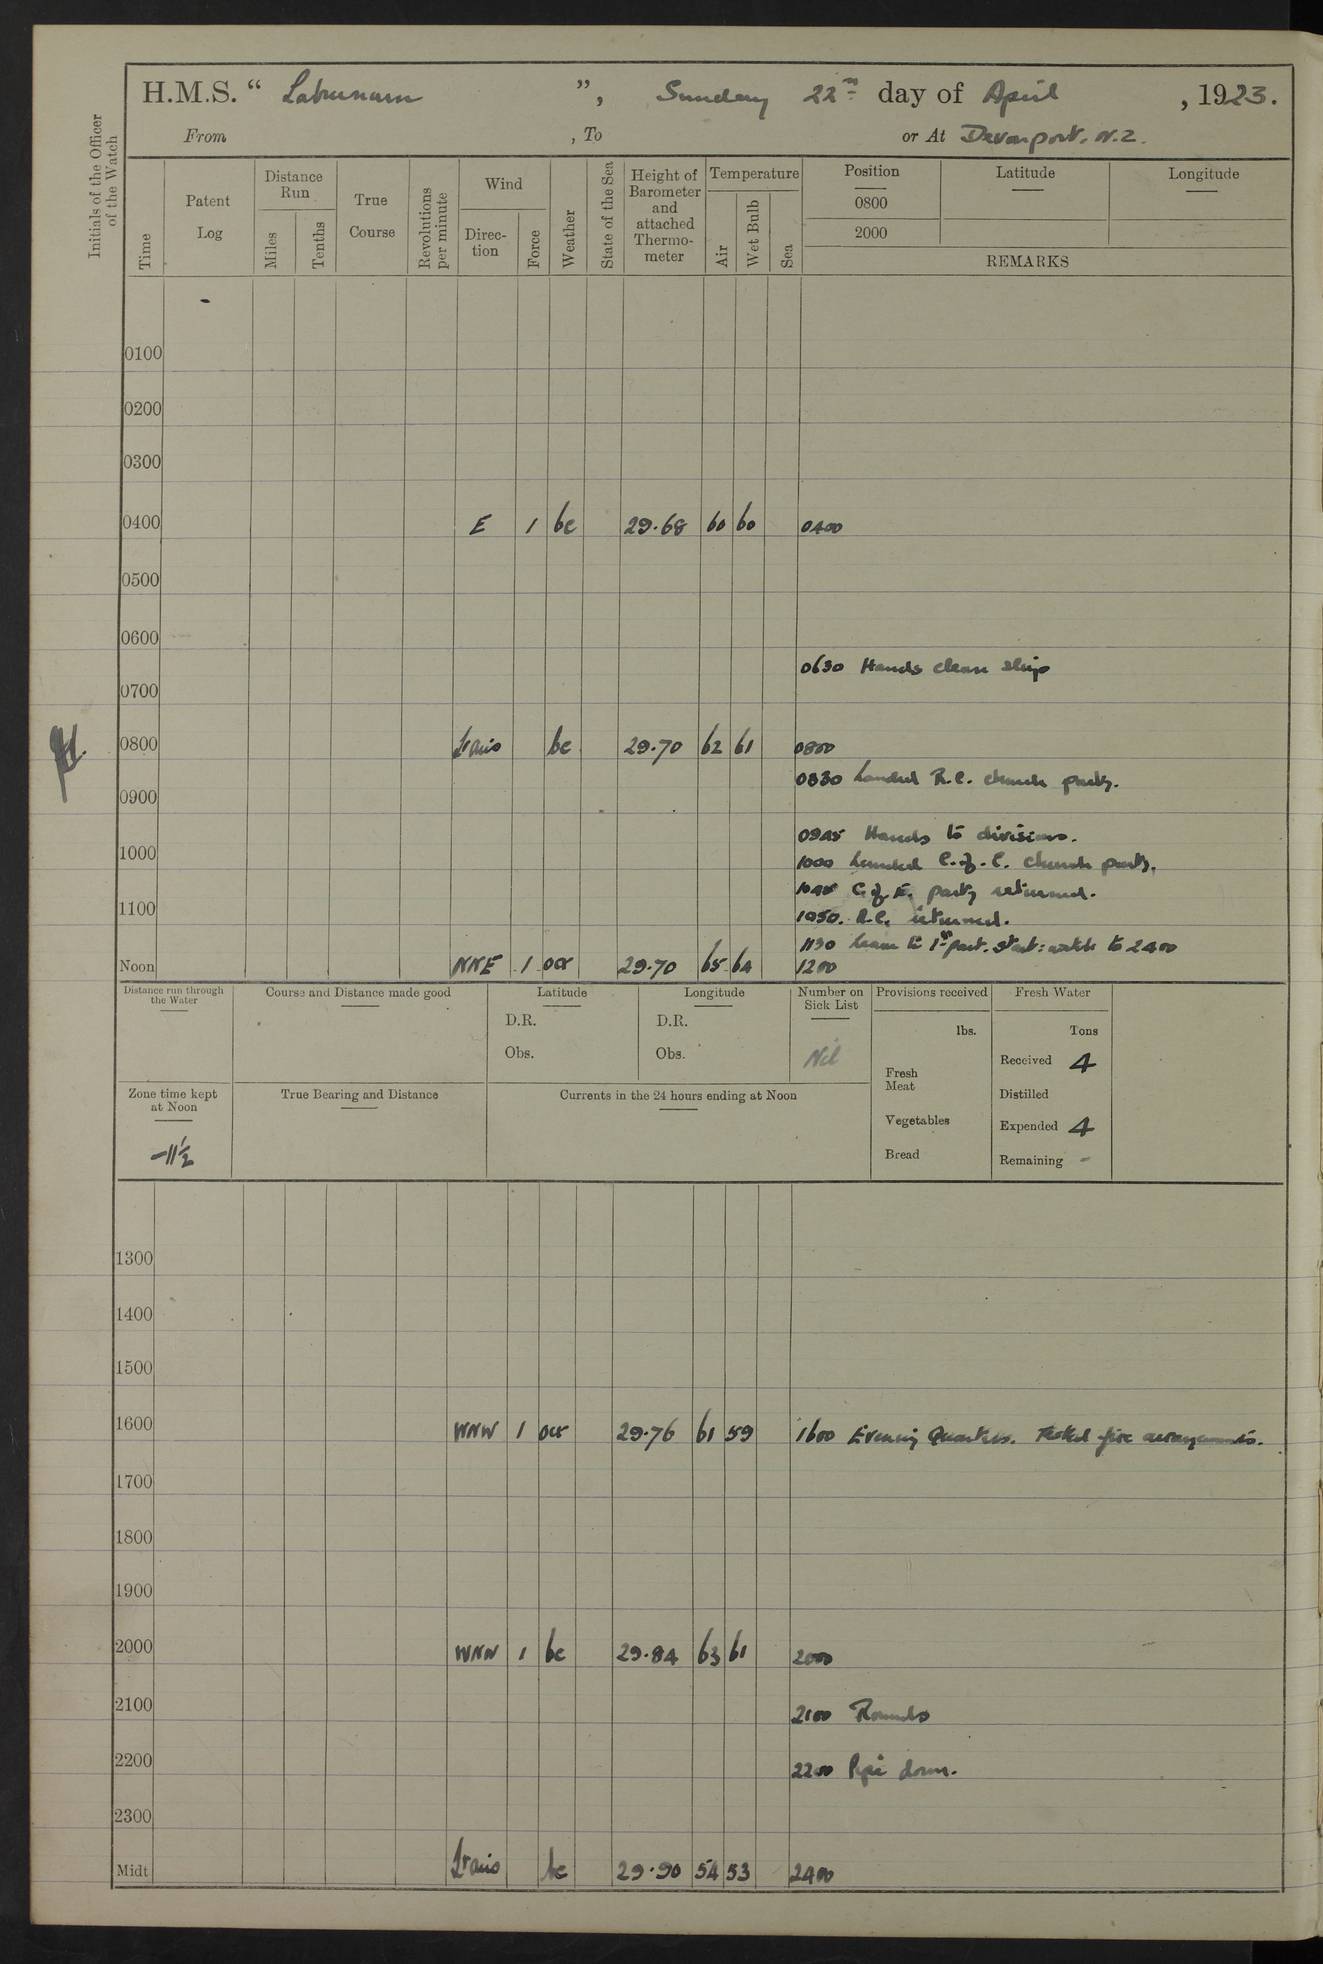 H.M.S. “ Laburnum ”, Sunday 22nd day of April, 1923.
From , To or At Devonport. N.Z.
Initials of the Officer of the Watch
Time
Patent Log
Distance Run
Miles
Tenths
True Course
Revolutions per minute
Wind
Direc-tion
Force
Weather
State of the Sea
Height of Barometer and attached Thermo-meter
Temperature
Air
Wet Bulb
Sea
Position
0800
2000
Latitude
Longitude
REMARKS
0100
0200
0300
0400 E 1 bc 29.68 60 60 0400
0500
0600
0630 Hands clean ship
0700
0800 Lt airs bc 29.70 62 61 0800
0830 Landed R.C. church party.
0900
0945 Hands to divisions.
1000 1000 Landed C. of E. church party.
1045 C of E. party returned.
1100 1050. R.C. returned.
1130 Leave to 1st part. starbd watch to 2400
Noon NNE 1 ocr 29.70 65 64 1200
Distance run through the Water
Course and Distance made good
Latitude
D.R.
Obs.
Longitude
D.R.
Obs.
Number on Sick List
Nil
Provisions received
lbs.
Fresh Meat
Vegetables
Bread
Fresh Water
Tons
Received 4
Distilled
Expended 4
Remaining -
Zone time kept at Noon
-11½
True Bearing and Distance
Currents in the 24 hours ending at Noon
1300
1400
1500
1600 WNW 1 ocr 29.76 61 59 1600 Evening Quarters. Tested fire arrangements.
1700
1800
1900
2000 WNW 1 bc 29.84 63 61 2000
2100 2100 Rounds
2200 2200 Pipe down.
2300
Midt Lt airs bc 29.90 54 53 2400